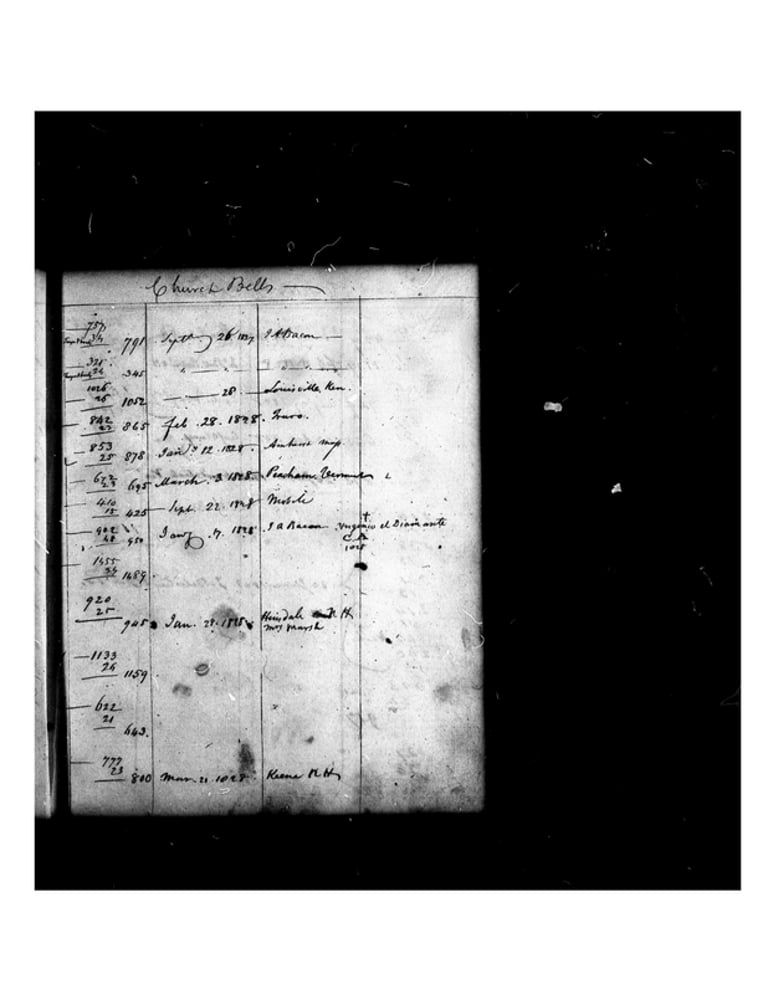 Church Bells
757
34 791 Septr 26 1827 J A Bacon
321
24 345 " "
1026
26 1052 — 28 Louisville Ken.
842
23 865 Feb. 28. 1828. Truro.
853
25 878 Jany 12. 1828. Amherst
672
23 695 March. 3. 1828. Peacham Vermont
410
15 425 Sept. 22. 1828 Mobile
902
48 950 Jany 7. 1828. J A Bacon el Diamante
1028
1455
34 1489
920
25
945 Jan. 29. 1828. Hinsdale N H
Mr Marsh
1133
26
1159
622
21
643.
777
23
800 Mar. 21. 1828 Keene N H